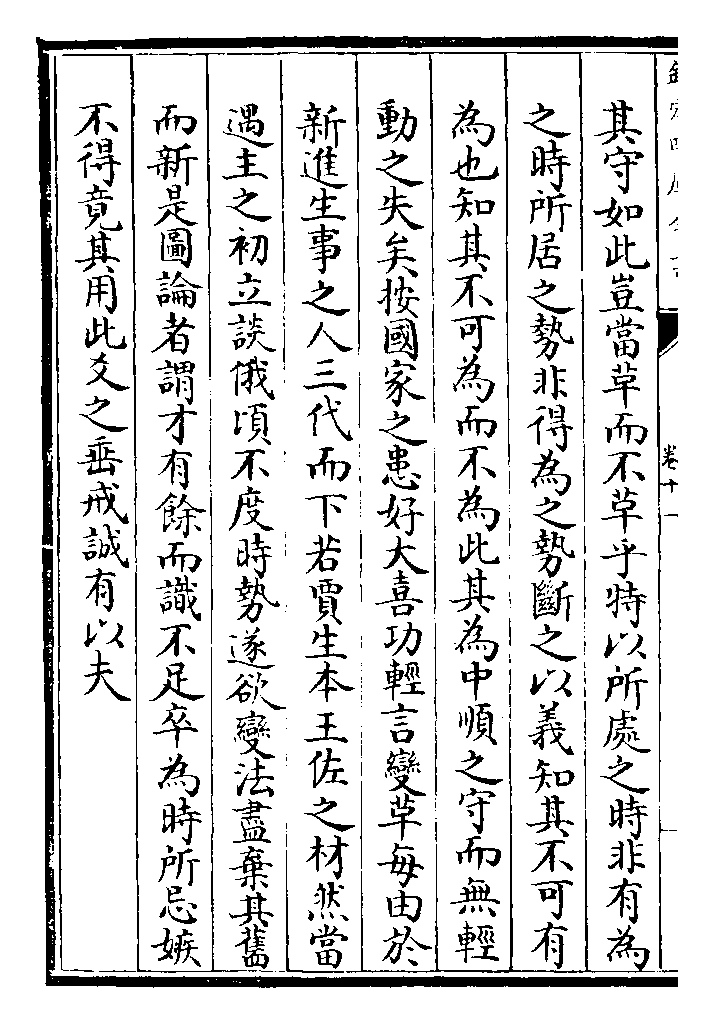 其守如此豈當革而不革乎特以所處之時非有為
之時所居之勢非得為之勢斷之以義知其不可有
為也知其不可為而不為此其為中順之守而無輕
動之失矣按國家之患好大喜功輕言變革每由於
新進生事之人三代而下若賈生本王佐之材然當
遇主之初立談俄頃不度時勢遂欲變法盡棄其舊
而新是圖論者謂才有餘而識不足卒為時所忌嫉
不得竟其用此爻之垂戒誠有以夫
卷十一